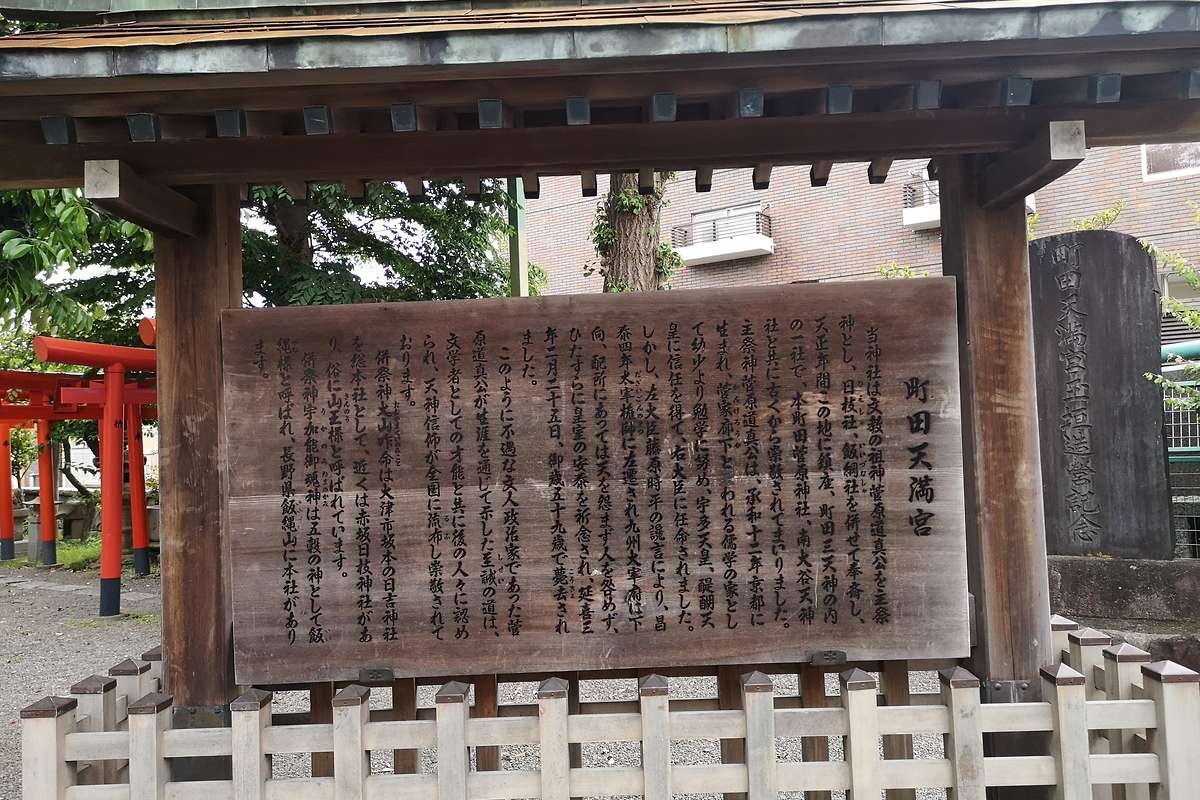 町田天満宮
当神社は文教の祖神菅原道真公を主祭
神とし、日枝社、飯綱社を併せて奉斎し、
天正年間この地に鎮座、町田三天神の内
の一社で、本町田菅原神社、南大谷天神
社と共に古くから崇敬されてまいりました。
主祭神菅原道真公は、承和十二年京都に
生まれ、菅家廊下といわれる儒学の家とし
て幼少より勉学に努め、宇多天皇、醍醐天
皇に信任を得て、右大臣に任命されました。
しかし、左大臣藤原時平の讒言により、昌
泰四年太宰権帥に左遷され九州大宰府に下
向、配所にあっては天を怨まず人を咎めず、
ひたすらに皇室の安泰を祈念され、延喜三
年二月二十五日、御歳五十九歳で薨去され
ました。
このように不遇な文人政治家であった菅
原道真公が生涯を通じて示した至誠の道は、
文学者としての才能と共に後の人々に認め
られ、天神信仰が全国に流布し崇敬されて
おります。
併祭神大山咋命は大津市坂本の日吉神社
を総本社として、近くは赤坂日枝神社があ
り、俗に山王様と呼ばれています。
併祭神宇加能御魂神は五穀の神として飯
縄様と呼ばれ、長野県飯縄山に本社があり
ます。
町田天満宮玉垣造営記念